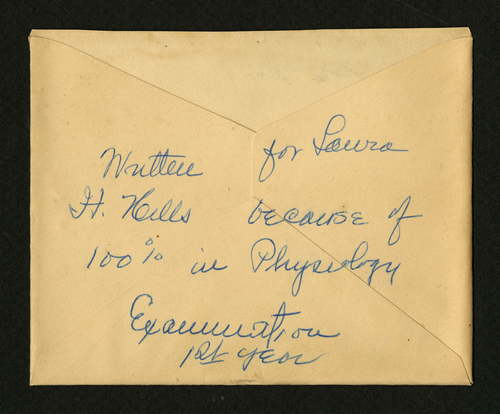 Written for Laura
H. Hills because of
100% in Physiology
Examination
1st year